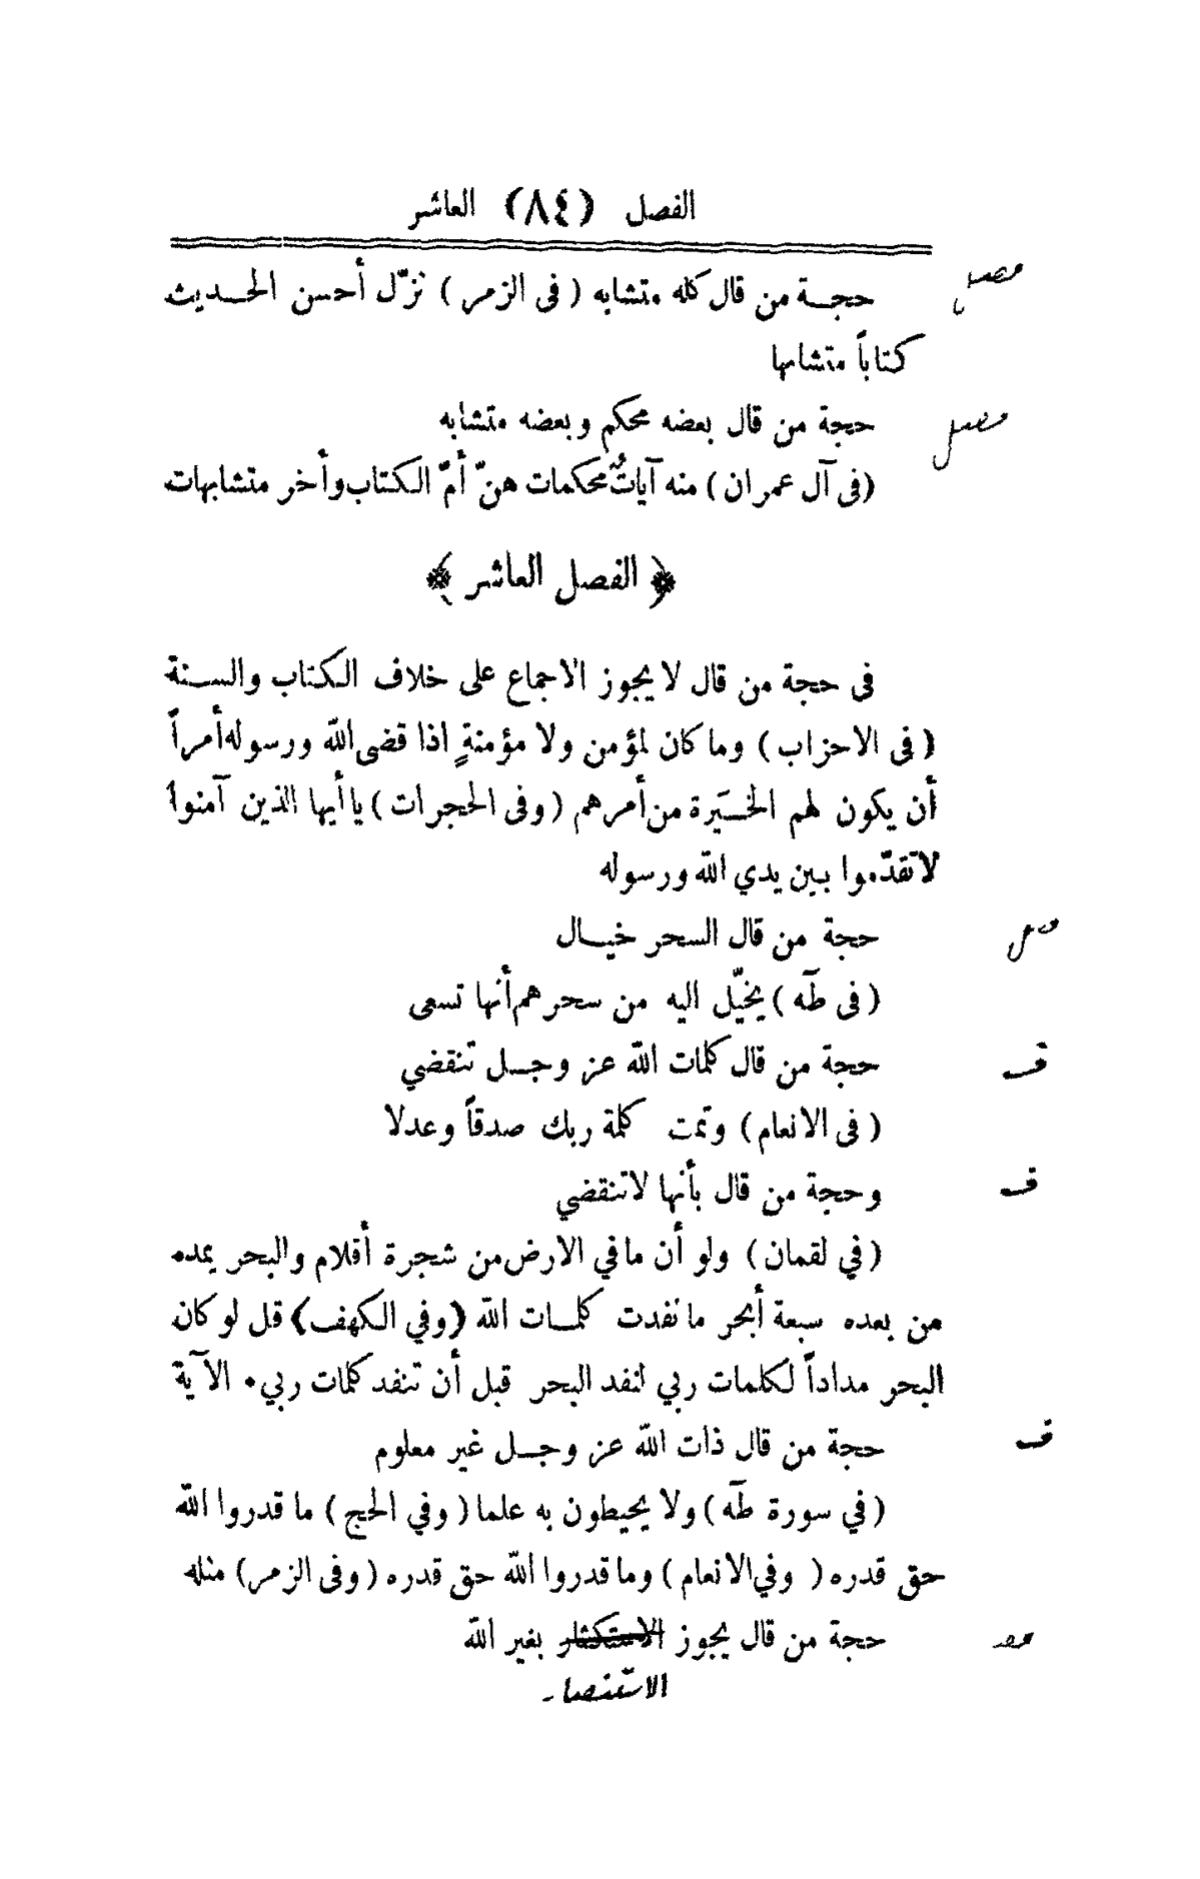 الفصل (٨٤) العاشر
حجـة من قال كله متشابه ( فى الزمر ) نزّل أحسن الحـديث
كتاباً متشابها
حجة من قال بعضه محكم وبعضه متشابه
(فى آل عمران ) منه آياتٌ محكمات هنّ أمّ الكتاب وأخر متشابهات
﴿ الفصل العاشر ﴾
فى حجة من قال لا يجوز الاجماع على خلاف الكتاب والسـنة
( فى الاحزاب ) وما كان لمؤمن ولا مؤمنةٍ اذا قضى الله ورسوله أمراً
أن يكون لهم الخـيَرة من أمرهم ( وفى الحجرات ) يا أيها الذين آمنوا
لا تقدّموا بين يدي الله ورسوله
حجة من قال السحر خيـال
( فى طٓه ) يخيّل اليه من سحرهم أنها تسعى
حجة من قال كلمات الله عز وجـل تنقضي
( فى الانعام ) وتمت كلمة ربك صدقاً وعدلا
وحجة من قال بأنها لا تنقضي
( في لقمان ) ولو أن ما في الارض من شجرة أقلام والبحر يمده
من بعده سبعة أبحر ما نفدت كلمـات الله (وفي الكهف) قل لو كان
البحر مداداً لكلمات ربي لنفد البحر قبل أن تنفد كلمات ربي. الآية
حجة من قال ذات الله عز وجـل غير معلوم
( في سورة طٓه ) ولا يحيطون به علما ( وفي الحج ) ما قدروا الله
حق قدره ( وفي الانعام ) وما قدروا الله حق قدره ( وفى الزمر ) مثله
حجة من قال يجوز الاستكثار بغير الله